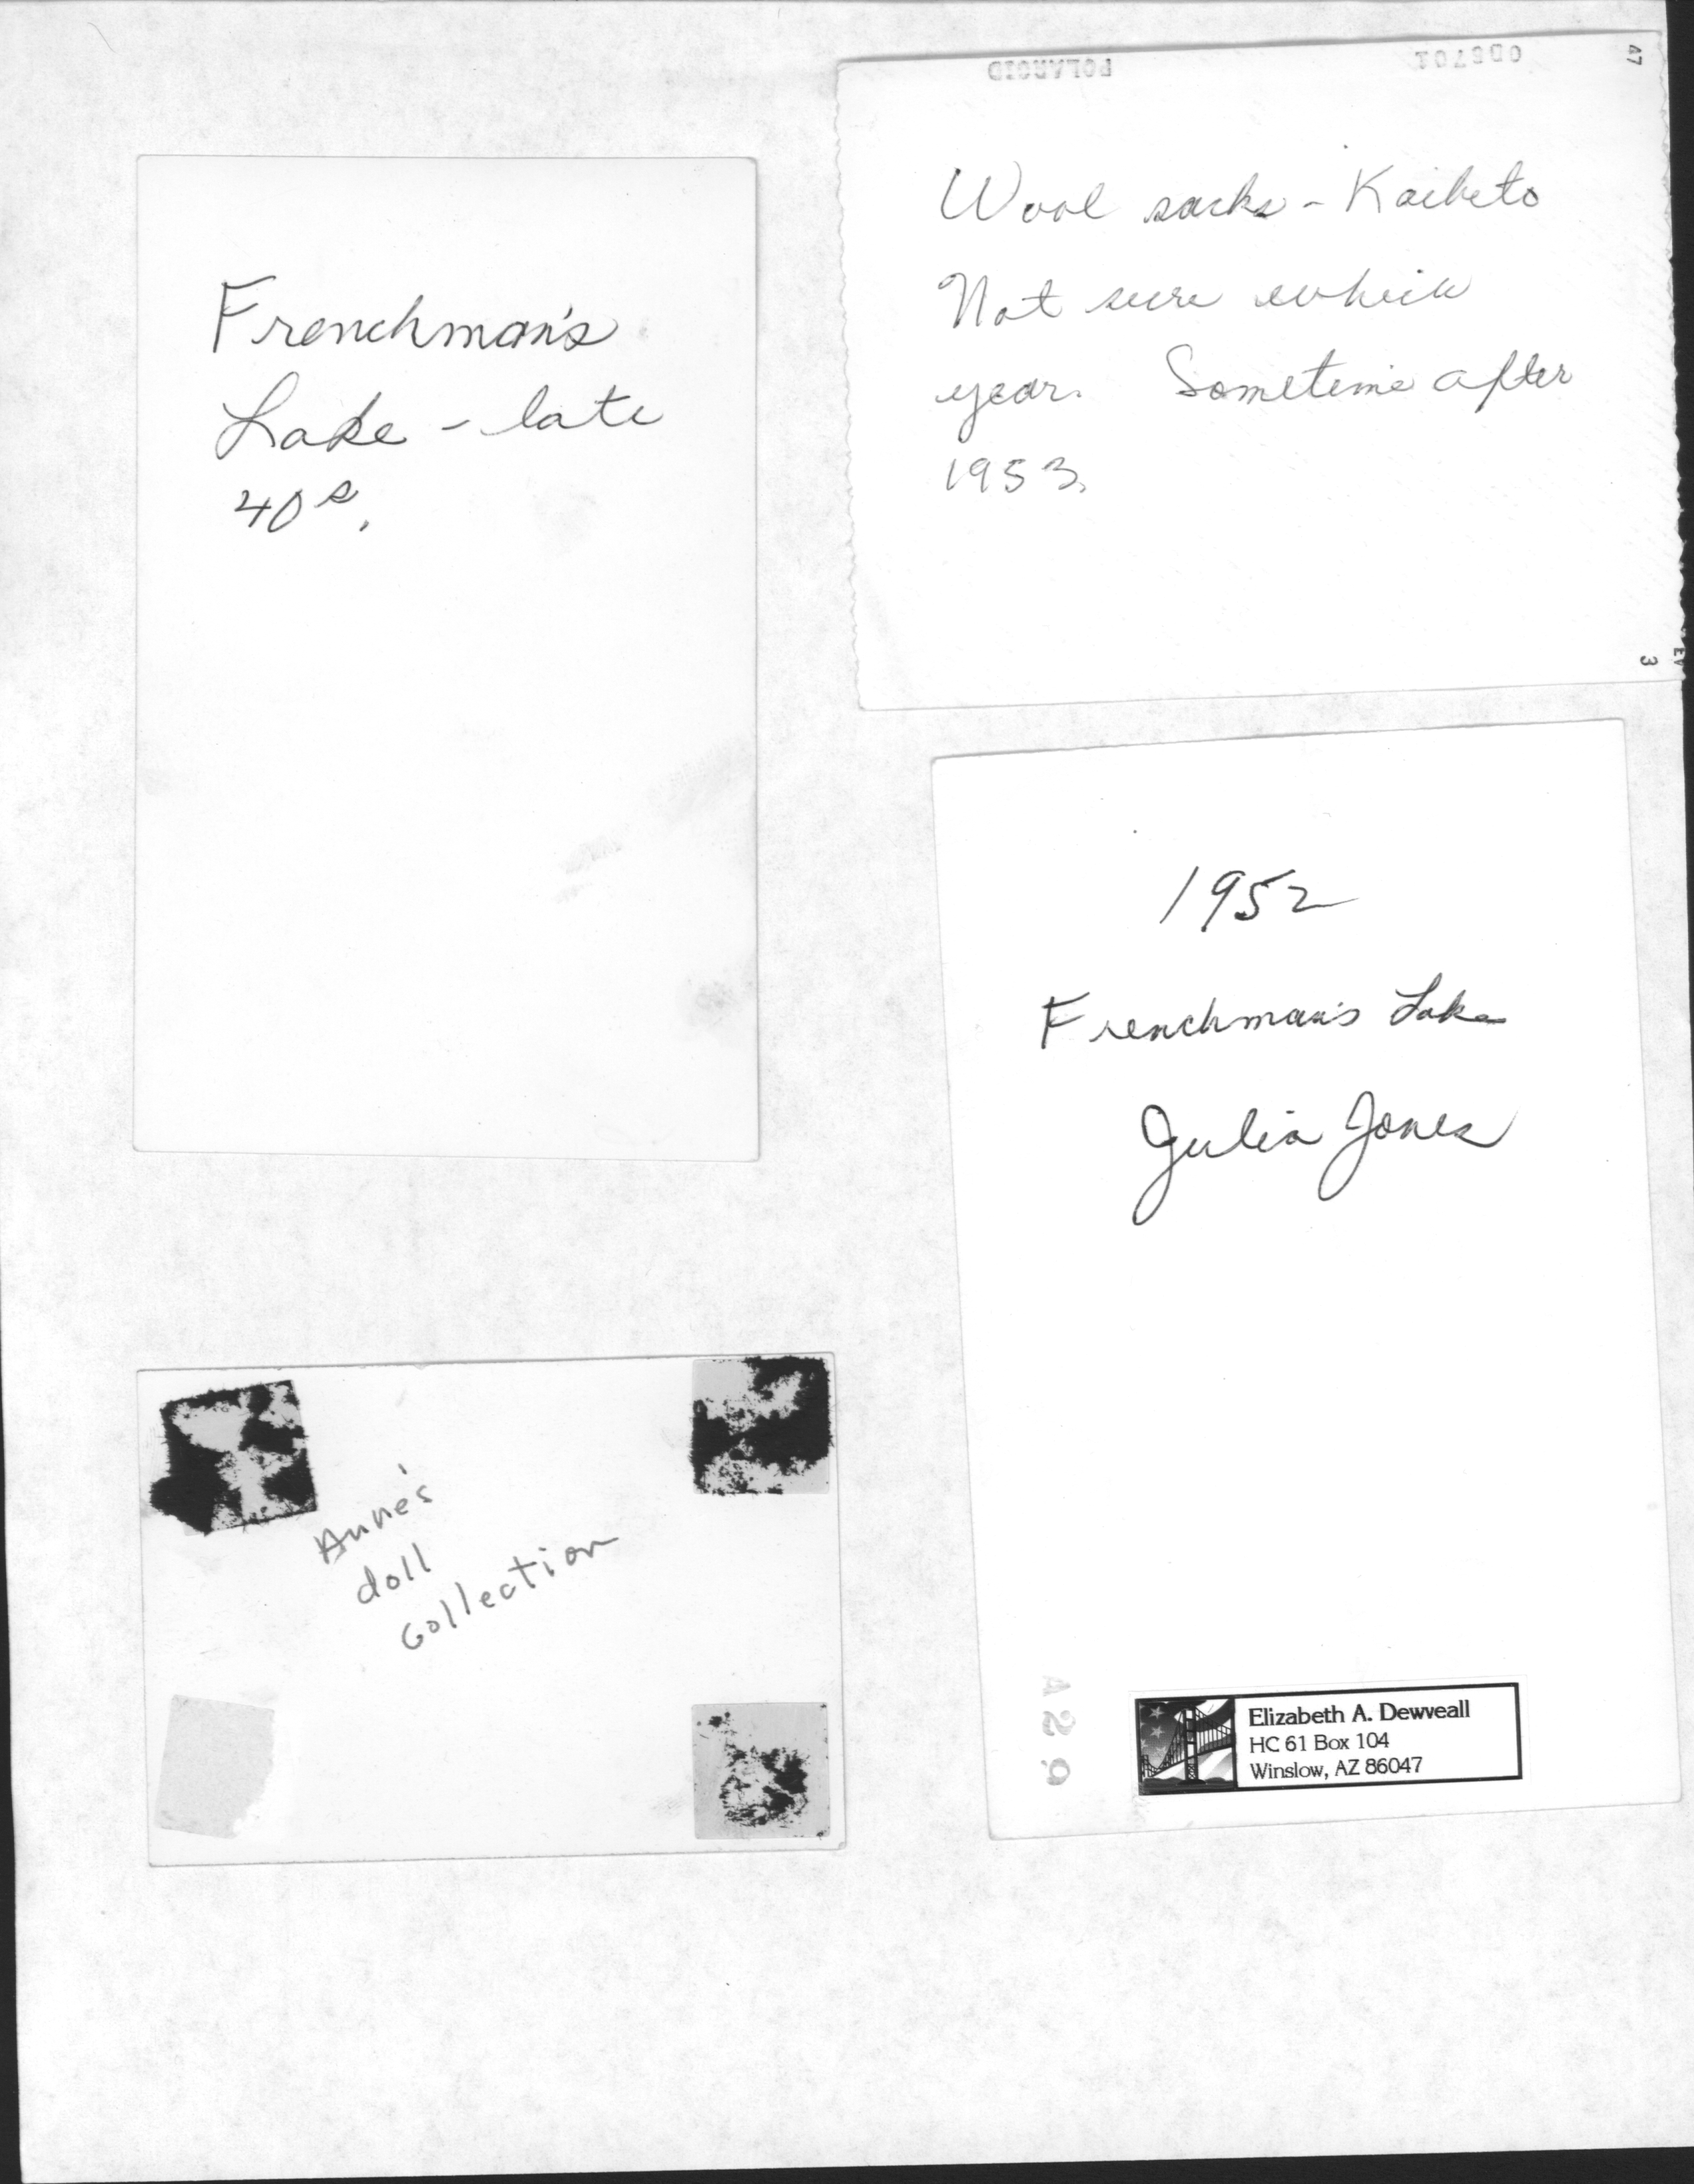 Frenchman's
Lake - late
40s.
POLAROID
47
Wool sacks - Kaibeto
Not sure which
year. Sometime after
1953.
3
1952
Frenchman's Lake
Julia Jones
A29
Elizabeth A. Dewveall
HC 61 Box 104
Winslow, AZ 86047
Anne's
doll
collection